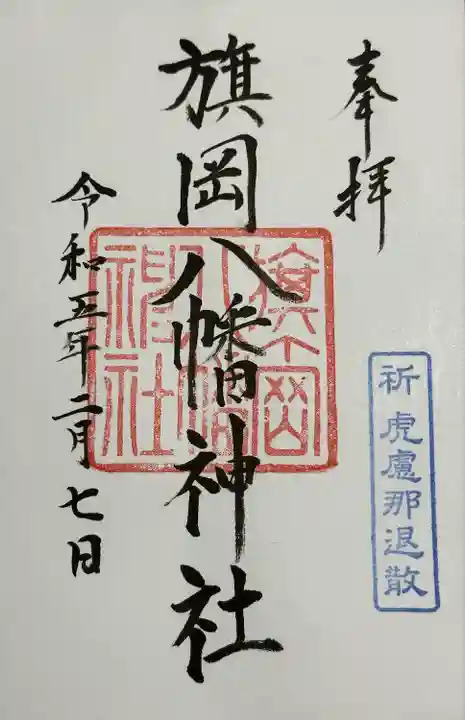 奉拝
旗岡八幡神社
旗岡八幡神社
令和五年二月七日
祈虎慮那退散